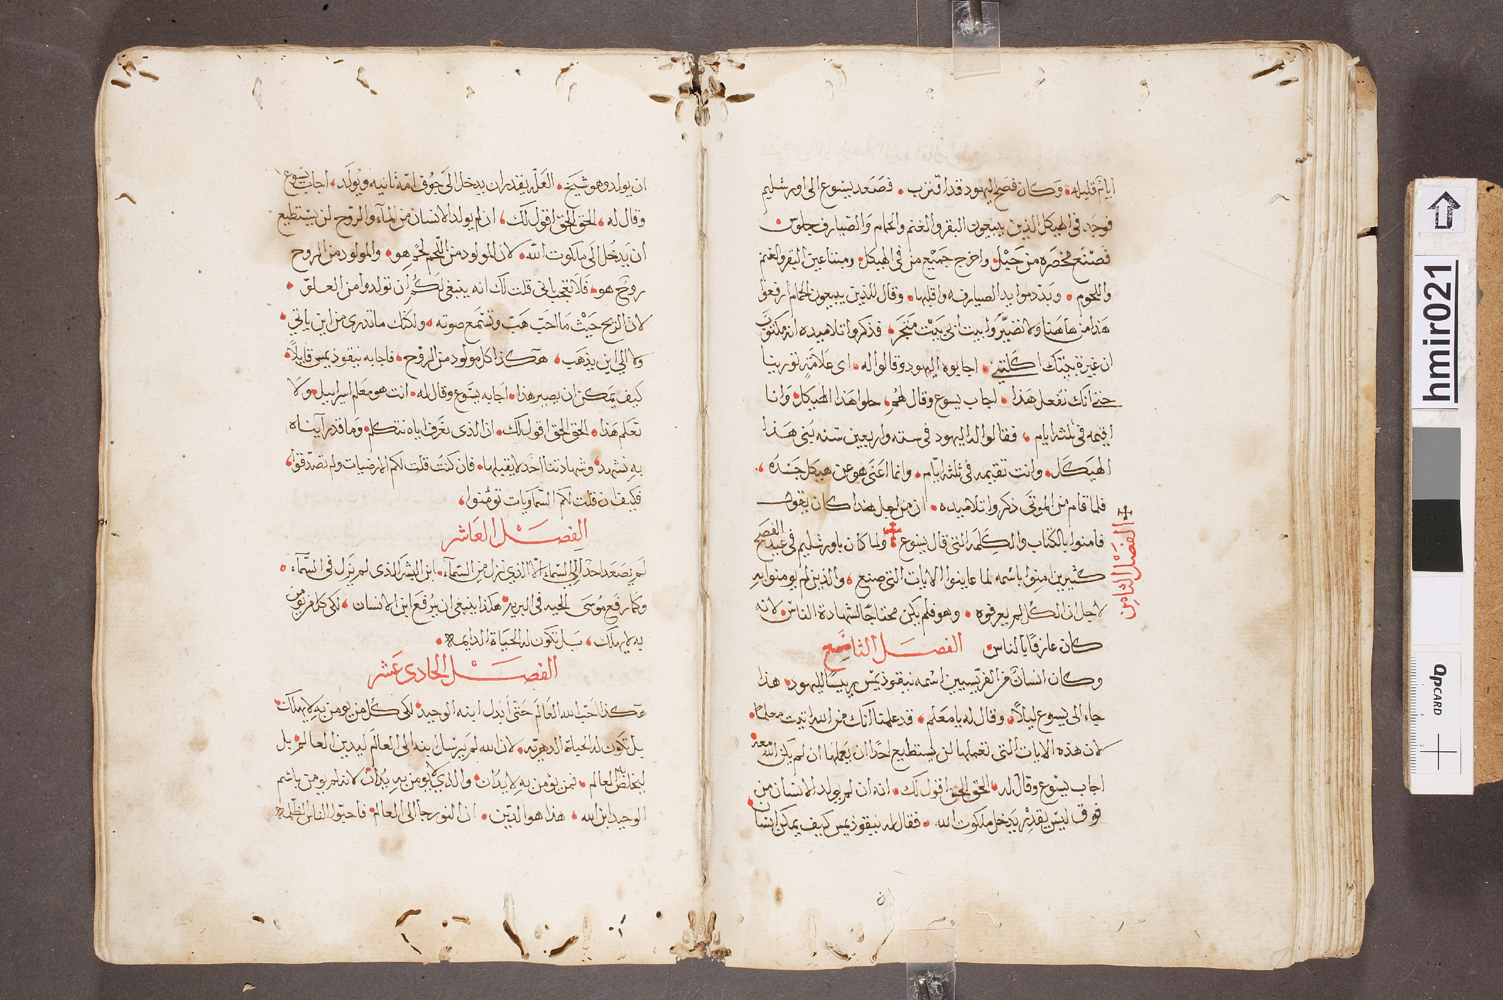 ايام قليله وكان فصح اليهود قد اقترب فصعد يسوع الى اورشليم
فوجد في الهيكل الذين يبيعون البقر والغنم والحمام والصيارف جلوس
فصنع مخصره من حبل واخرج جميع من في الهيكل ومبتاعين البقر والغنم
واللحوم وبدد موايد الصيارفه واقلبها وقال للذين يبيعون الحمام ارفعوا
هذا من هاهنا ولا تصيروا بيت ابي بيت متجر فذكروا تلاميذه انه مكتوب
ان غيرة بيتك اكلتني اجابوه اليهود وقالوا له اى علامة ترينا
حتى انك تفعل هذا اجاب يسوع وقال لهم حلوا هذا الهيكل وانا
اقيمه في ثلثة ايام فقالوا له اليهود في سته واربعين سنه بني هذا
الهيكل وانت تقيمه في ثلثه ايام وانما اعنى هو عن هيكل جسده
فلما قام من الموتى ذكروا تلاميذه ان من اجل هذا كان يقول
فامنوا بالكتاب والكلمه التي قال يسوع ولما كان باورشليم في عيد الفصح
الفصل الثامن
كثيرين امنوا باسمه لما عاينوا الايات التي صنع والذين لم يومنوا به
لاجل ان الكل لم يعرفوه وهو فلم يكن محتاجا لشهادة الناس لانه
كان عارفا بالناس الفصل التاسع
وكان انسان من الفريسيين اسمه نيقوذيمس رييسا لليهود هذا
جاء الى يسوع ليلا وقال له يا معلم قد علمنا انك من الله اتيت معلما
لان هذه الايات التى تعملها لن يستطيع احدا ان يعملها ان لم يكن الله معه
اجاب يسوع وقال له الحق الحق اقول لك انه ان لم يولد الانسان من
فوق ليس يقدر يدخل ملكوت الله فقال له نيقوذيمس كيف يمكن انسان
ان يولد وهو شيخ العله يقدر ان يدخل الى جوف امه ثانيه ويولد اجاب يسوع
وقال له الحق الحق اقول لك ان لم يولد الانسان من الماء والروح لن يستطيع
ان يدخل الى ملكوت الله لان المولود من اللحم لحم هو والمولود من الروح
روح هو فلا تعجب اني قلت لك انه ينبغي لكم ان تولدوا من العلو
لان الريح حيث ما احب هب وتسمع صوته ولكنك ما تدرى من اين ياتي
ولا الى اين يذهب هكذا كل مولود من الروح فاجابه نيقوذيمس قايلا
كيف يمكن ان يصير هذا اجابه يسوع وقال له انت هو معلم اسرايل ولا
تعلم هذا الحق الحق اقول لك ان الذى نعرف اياه نتكلم وما قد رايناه
به نشهد وشهادتنا احد لا يقبلها فان كنت قلت لكم الارضيات ولم تصدقوا
فكيف ان قلت لكم السماويات تومنوا
الفصل العاشر
لم يصعد احد الى السماء الا الذي نزل من السماء ابن البشر الذى لم يزل في السماء
وكما رفع موسى الحيه في البريه هكذا ينبغى ان يرفع ابن الانسان لكى كل من يومن
به لا يهلك بل تكون له الحياة الدايمه
الفصل الحادى عشر
هكذا احب الله العالم حتى ابدل ابنه الوحيد لكي كل من يومن به لا يهلك
بل تكون له الحياة الدهريه لان الله لم يرسل ابنه الى العالم ليدين العالم بل
ليخلص به العالم فمن يومن به لا يدان والذي لا يومن به يدان لانه لم يومن باسم
الوحيد ابن الله هذا هو الدين ان النور جا الى العالم فاحبوا الناس الظلمه
hmir021
CARD